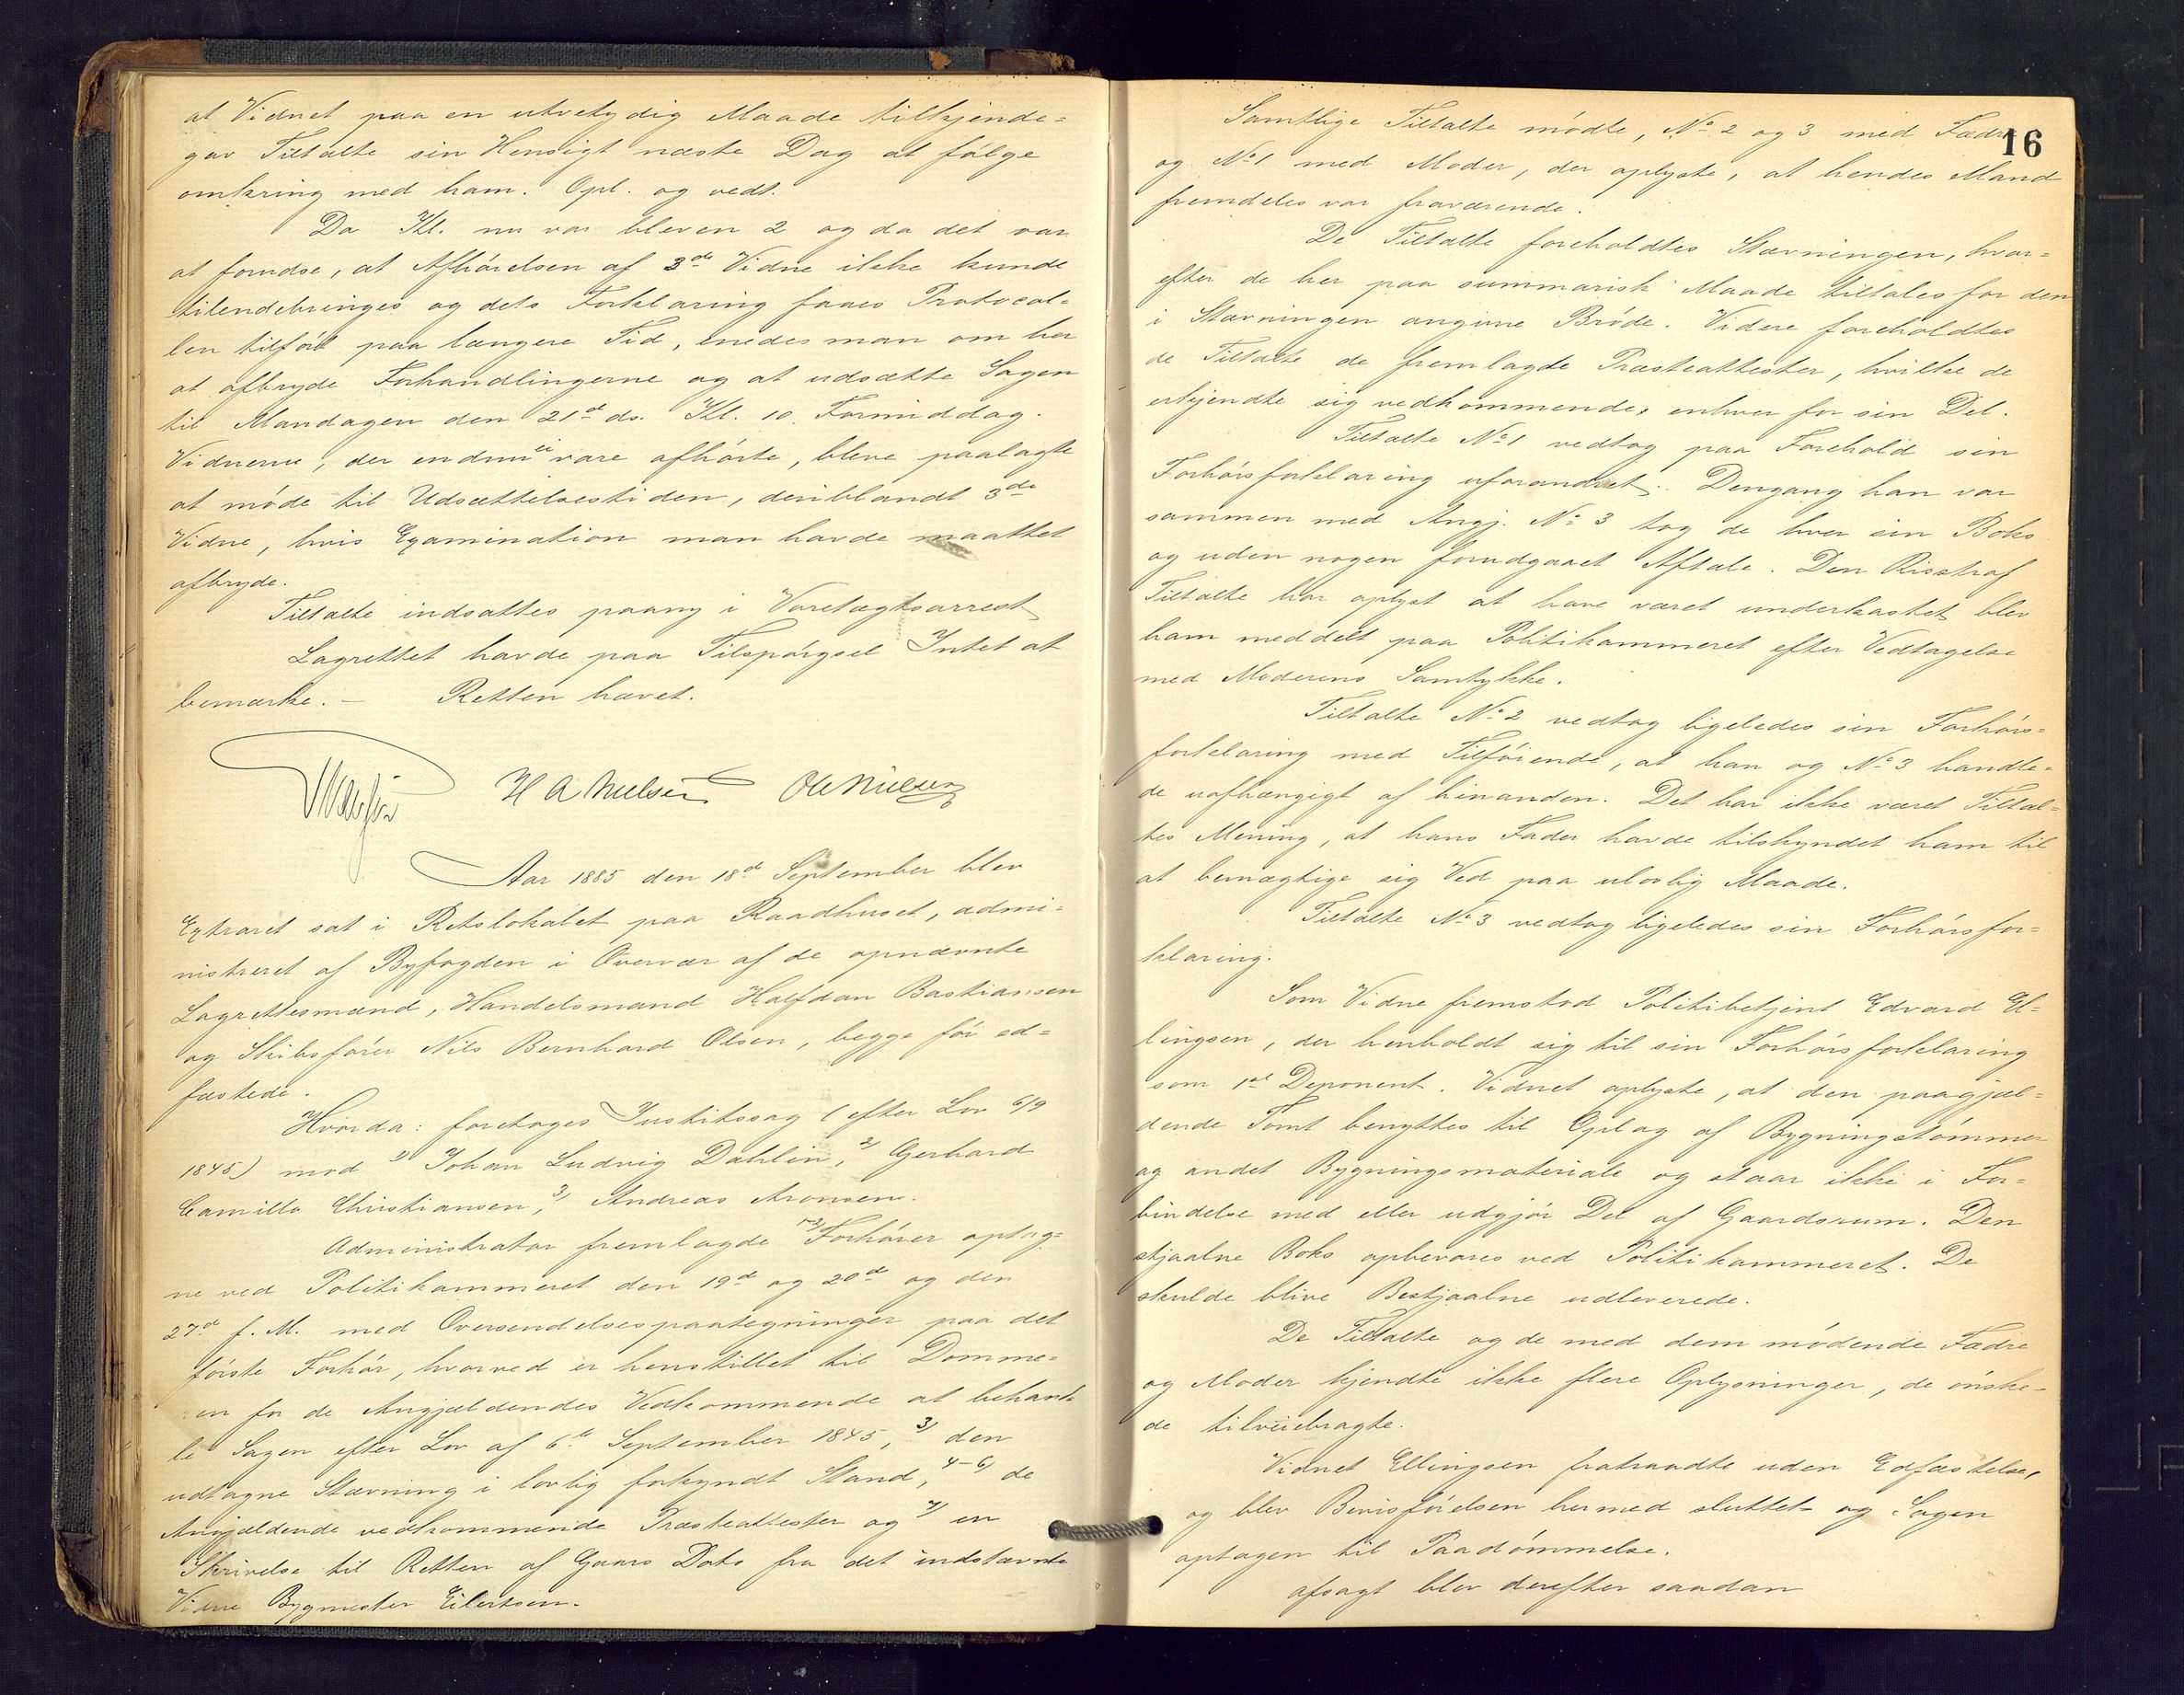 at Vidnet paa en utvetydig Maade tilkjende-
gav Tiltalte sin Hensigt næste Dag at følge
omkring med ham. Opl. og vedt.
Da Kl. nu var bleven 2 og da det var
at forudse, at Afhørelsen af 3de Vidne ikke kunde
tilendebringes og dets Forklaring faaes Protocol-
len tilført paa længere Tid, enedes man om her
at afbryde Forhandlingerne og at udsætte Sagen
til Mandagen den 21de ds. Kl. 10 Formiddag.
Vidnerne, der endnu ei vare afhørte, bleve paalagte
at møde til Udsættelsestiden, deriblandt 3de
Vidne, hvis Examination man havde maattet
afbryde.
Tiltalte indsattes paany i Varetægtsarrest
Lagrettet havde paa Tilspørgsel Intet at
bemærke. – Retten hævet.
H A Nielsen Ole Nielsen
Aar 1885 den 18de September blev
Extraret sat i Retslokalet paa Raadhuset, admi-
nistreret af Byfogden i Overvær af de opnævnte
Lagrettesmænd, Handelsmand Halfdan Bastiansen
og Skibsfører Nils Bernhard Olsen, begge før ed-
fæstede.
Hvorda: foretoges Justitssag (efter Lov 6/9
1845) mod 1) Johan Ludvig Dahlin, 2) Gerhard
Camillo Christiansen, 3) Andreas Aronsen.
Administrator fremlagde 1-2) Forhører optag-
ne ved Politikammeret den 19de og 20de og den
27de f. M. med Oversendelsespaategninger paa det
første Forhør, hvorved er henstillet til Domme-
ren for de Angjældendes Vedkommende at behand-
le Sagen efter Lov af 6te September 1845, 3) den
udtagne Stævning i lovlig forkyndt Stand, 4-6) de
Angjældende vedkommende Præsteattester og 7) en
Skrivelse til Retten af Gaars Dato fra det indstævnte
Vidne Bygmester Eilertsen.
16
Samtlige Tiltalte mødte, No 2 og 3 med Fædre
og No 1 med Moder, der oplyste, at hendes Mand
fremdeles var fraværende.
De Tiltalte foreholdtes Stævningen, hvor-
efter de her paa summarisk Maade tiltales for den
i Stævningen angivne Brøde. Videre foreholdtes
de Tiltalte de fremlagde Præsteattester, hvilke de
erkjendte sig vedkommende, enhver for sin Del.
Tiltalte No 1 vedtog paa Forehold sin
Forhørsforklaring uforandret. Dengang han var
sammen med Angj. No 3 tog de hver sin Boks
og uden nogen forudgaaet Aftale. Den Risstraf
Tiltalte har oplyst at have været underkastet blev
ham meddelt paa Politikammeret efter Vedtagelse
med Moderens Samtykke.
Tiltalte No 2 vedtog ligeledes sin Forhørs-
forklaring med Tilføiende, at han og No 3 handle-
de uafhængigt af hinanden. Det har ikke været Tiltal-
tes Mening, at hans Fader havde tilskyndet ham til
at bemægtige sig Ved paa ulovlig Maade.
Tiltalte No 3 vedtog ligeledes sin Forhørsfor-
klaring.
Som Vidne fremstod Politibetjent Edvard El-
lingsen, der henholdt sig til sin Forhørsforklaring
som 1ste Deponent. Vidnet oplyste, at den paagjæl-
dende Tomt benyttes til Oplag af Bygningstømmer
og andet Bygningsmateriale og staar ikke i For-
bindelse med eller udgjør Del af Gaardsrum. Den
stjaalne Boks opbevares ved Politikammeret. De
skulde blive Bestjaalne udleverede.
De Tiltalte og de med dem mødende Fædre
og Moder kjendte ikke flere Oplysninger, de ønske-
de tilveiebragte.
Vidnet Ellingsen fratraadte uden Edfæstelse,
og blev Bevisførelsen hermed sluttet og Sagen
optagen til Paadømmelse.
Afsagt blev derefter saadan